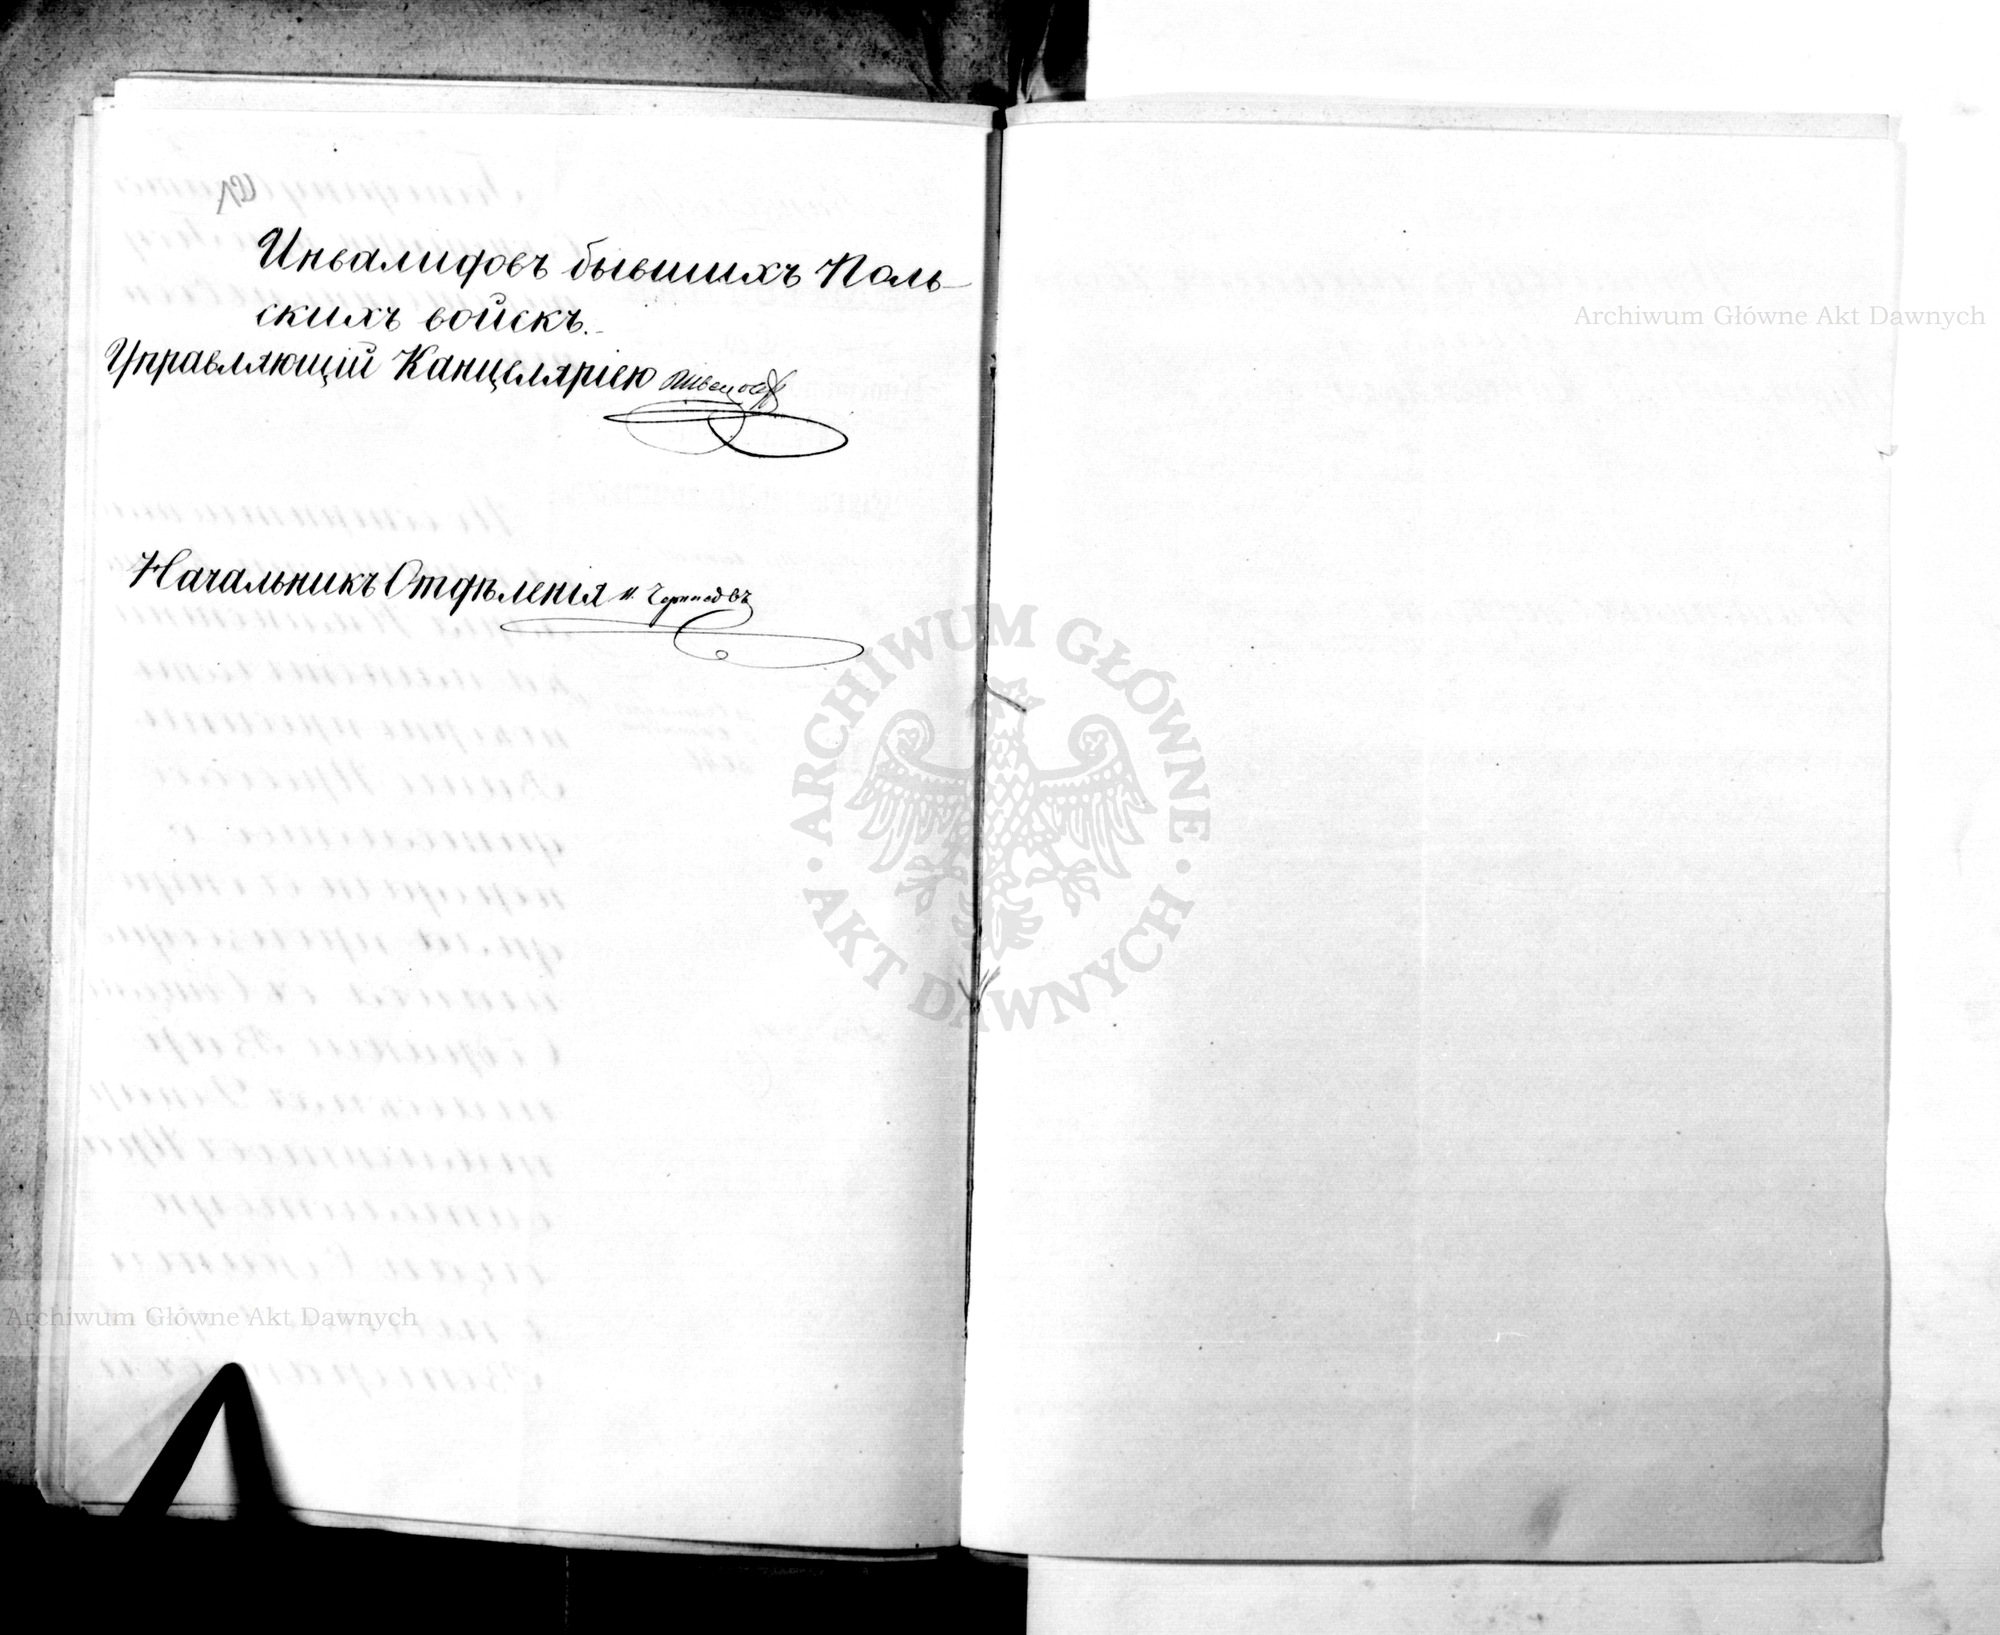 Инвалидовъ бывшихъ Поль-
скихъ войскъ.
Управляющій Канцеляріею
Начальникъ Отдѣленія
Archiwum Główne Akt Dawnych
ARCHIWUM GŁÓWNE
AKT DAWNYCH
Archiwum Główne Akt Dawnych